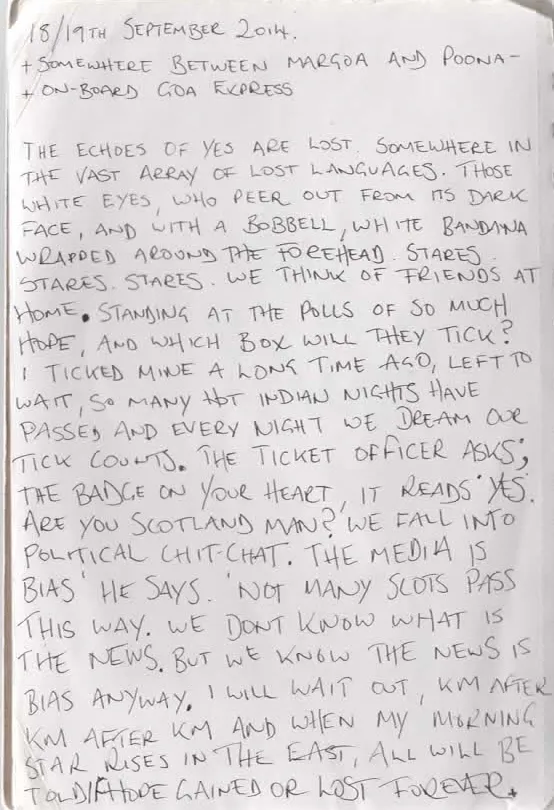 18/19TH SEPTEMBER 2014.
+ SOMEWHERE BETWEEN MARGOA AND POONA -
+ ON-BOARD GOA EXPRESS
THE ECHOES OF YES ARE LOST. SOMEWHERE IN
THE VAST ARRAY OF LOST LANGUAGES. THOSE
WHITE EYES, WHO PEER OUT FROM ITS DARK
FACE, AND WITH A BOBBELL, WHITE BANDANA
WRAPPED AROUND THE FOREHEAD. STARES.
STARES. STARES. WE THINK OF FRIENDS AT
HOME. STANDING AT THE POLLS OF SO MUCH
HOPE, AND WHICH BOX WILL THEY TICK?
I TICKED MINE A LONG TIME AGO, LEFT TO
WAIT, SO MANY HOT INDIAN NIGHTS HAVE
PASSED AND EVERY NIGHT WE DREAM OUR
TICK COUNTS. THE TICKET OFFICER ASKS;
THE BADGE ON YOUR HEART, IT READS 'YES'.
ARE YOU SCOTLAND MAN? WE FALL INTO
POLITICAL CHIT-CHAT. THE MEDIA IS
BIAS' HE SAYS. 'NOT MANY SCOTS PASS
THIS WAY. WE DONT KNOW WHAT IS
THE NEWS. BUT WE KNOW THE NEWS IS
BIAS ANYWAY. I WILL WAIT OUT, KM AFTER
KM AFTER KM AND WHEN MY MORNING
STAR RISES IN THE EAST, ALL WILL BE
TOLD/HOPE GAINED OR LOST FOREVER. +